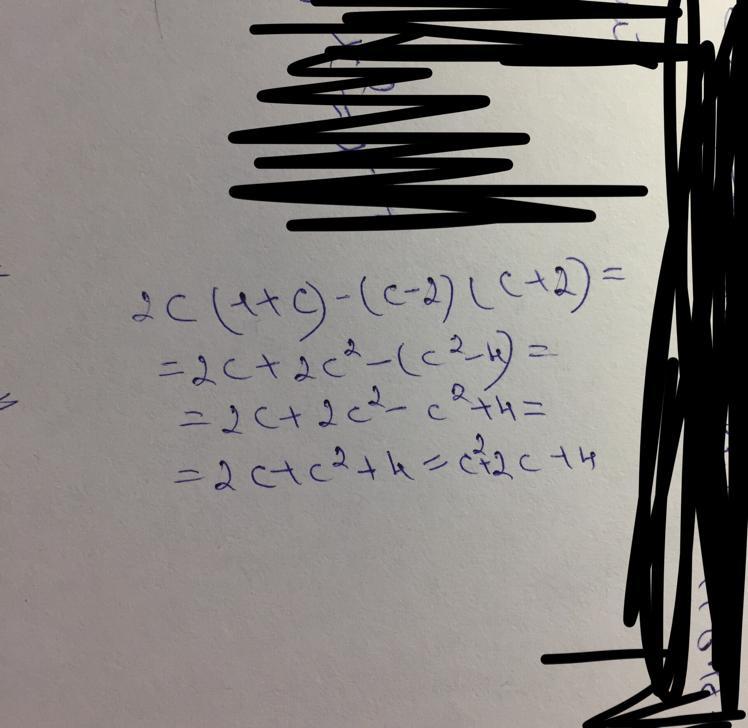 2c(1+c)-(c-2)(c+2)=
=2c+2c²-(c²-4)=
=2c+2c²-c²+4=
=2c+c²+4=c²+2c+4